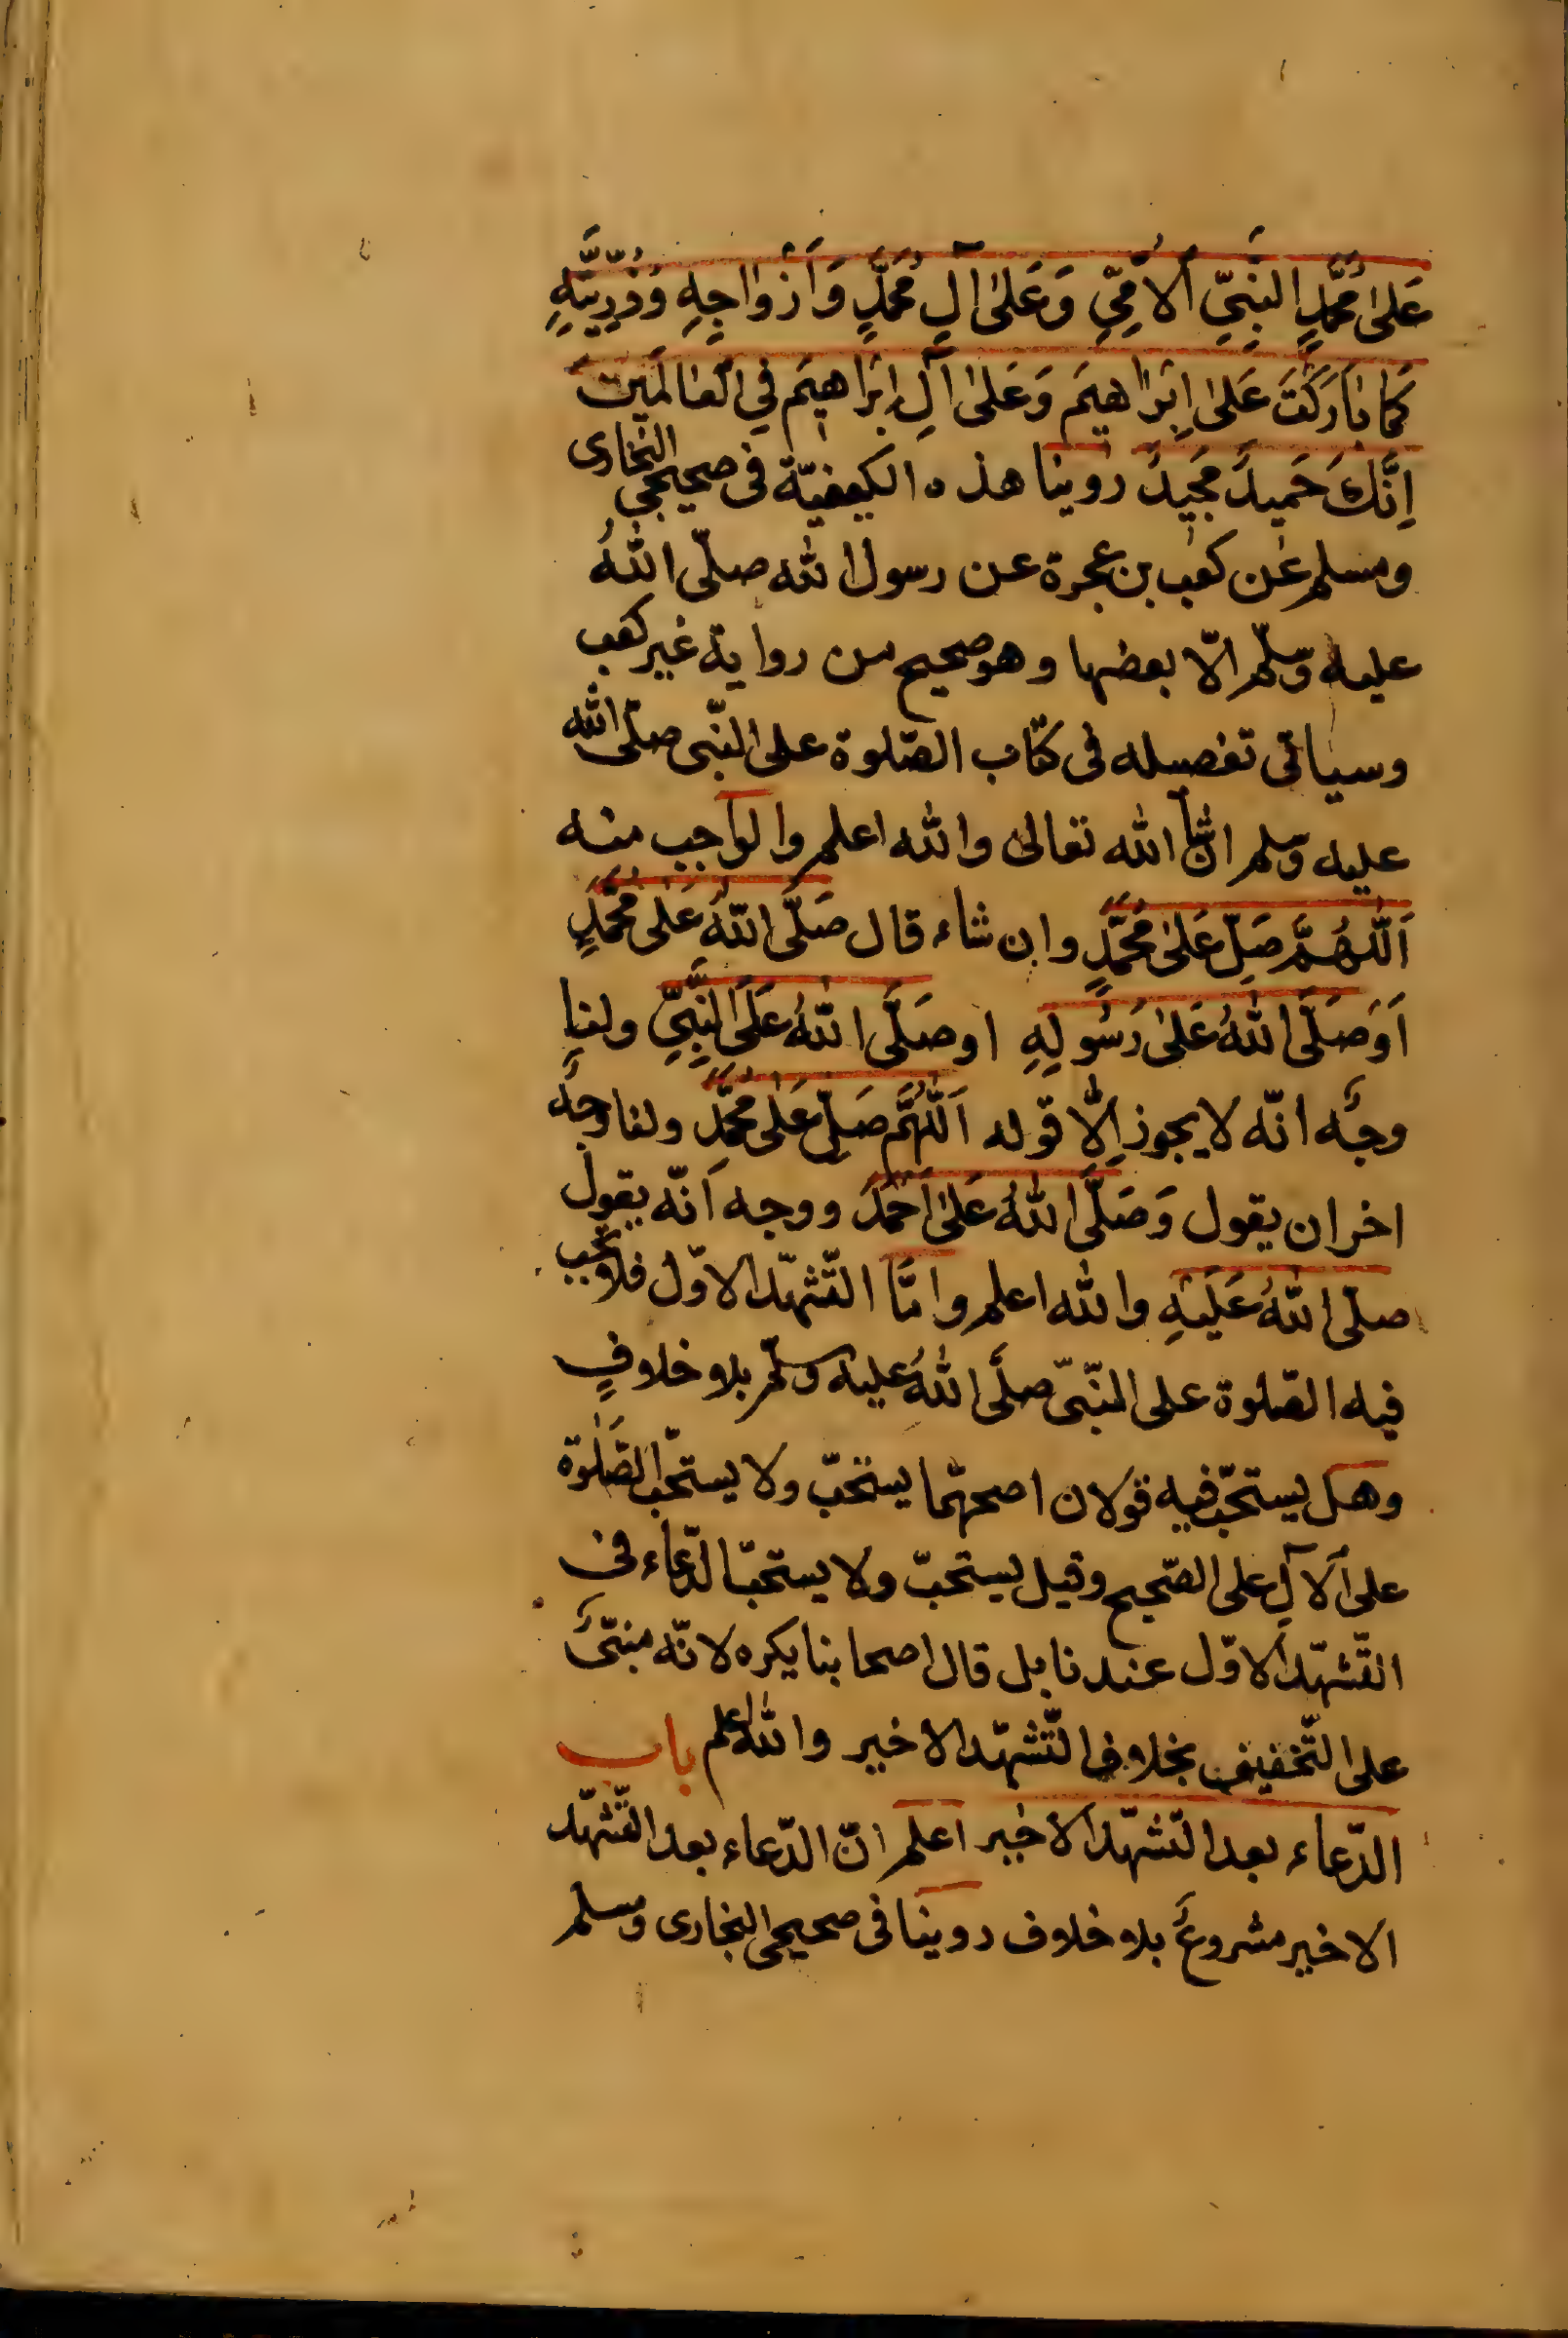 عَلىٰ مُحَمَّدٍ النَّبِيِّ الْاُمِّيِّ وَعَلىٰ آلِ مُحَمَّدٍ وَاَزْوَاجِهِ وَذُرِّيَّتِهِ
كَمَا بَارَكْتَ عَلىٰ اِبْرَاهِيمَ وَعَلىٰ آلِ اِبْرَاهِيمَ فِي الْعَالَمِينَ
اِنَّكَ حَمِيدٌ مَجِيدٌ روينا هذه الكيفيّة فى صحيحى البخارى
ومسلم عن كعب بن عجرة عن رسول الله صلّى اللهُ
عليه وسلّم الّا بعضها وهو صحيح من رواية غير كعب
وسياتى تفصيله فى كتاب الصّلوة على النّبى صلّى الله
عليه وسلم انشأ الله تعالىٰ والله اعلم والواجب منه
اَللّٰهُمَّ صَلِّ عَلىٰ مُحَمَّدٍ وان شاء قال صَلَّى اللّٰهُ عَلىٰ مُحَمَّدٍ
اَوْ صَلَّى اللّٰهُ عَلىٰ رَسُولِهِ او صَلَّى اللّٰهُ عَلَى النَّبِيِّ ولنا
وجه انّه لا يجوز اِلّا قوله اَللّٰهُمَّ صَلِّ عَلىٰ مُحَمَّدٍ ولنا وجه
اخر ان يقول وَصَلَّى اللّٰهُ عَلىٰ اَحْمَدَ ووجه اَنّه يقول
صلّى اللّٰهُ عَلَيْهِ والله اعلم وامَّا التّشهّد الاوّل فلا يجب
فيه الصّلوة على النّبىّ صلَّى اللّٰهُ عليه وسلّم بلا خلافٍ
وهل يستحبّ فيه قولان اصحّهما يستحبّ ولا يستحبّ الصَّلٰوة
على اَلْآلِ على الصّحيح وقيل يستحبّ ولا يستحبّ الدّعاء فى
التّشهّد الاوّل عندنا بل قال اصحابنا يكره لانّه مبنىّ
على التّخفيف بخلاف التّشهّد الاخير والله اعلم باب
الدّعاء بعد التّشهّد الاخير اعلم انّ الدّعاء بعد التّشهّد
الاخير مشروعٌ بلا خلاف روينا فى صحيحى البخارى ومسلم